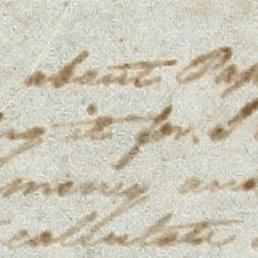 about Pap
it for.
money and
calculate